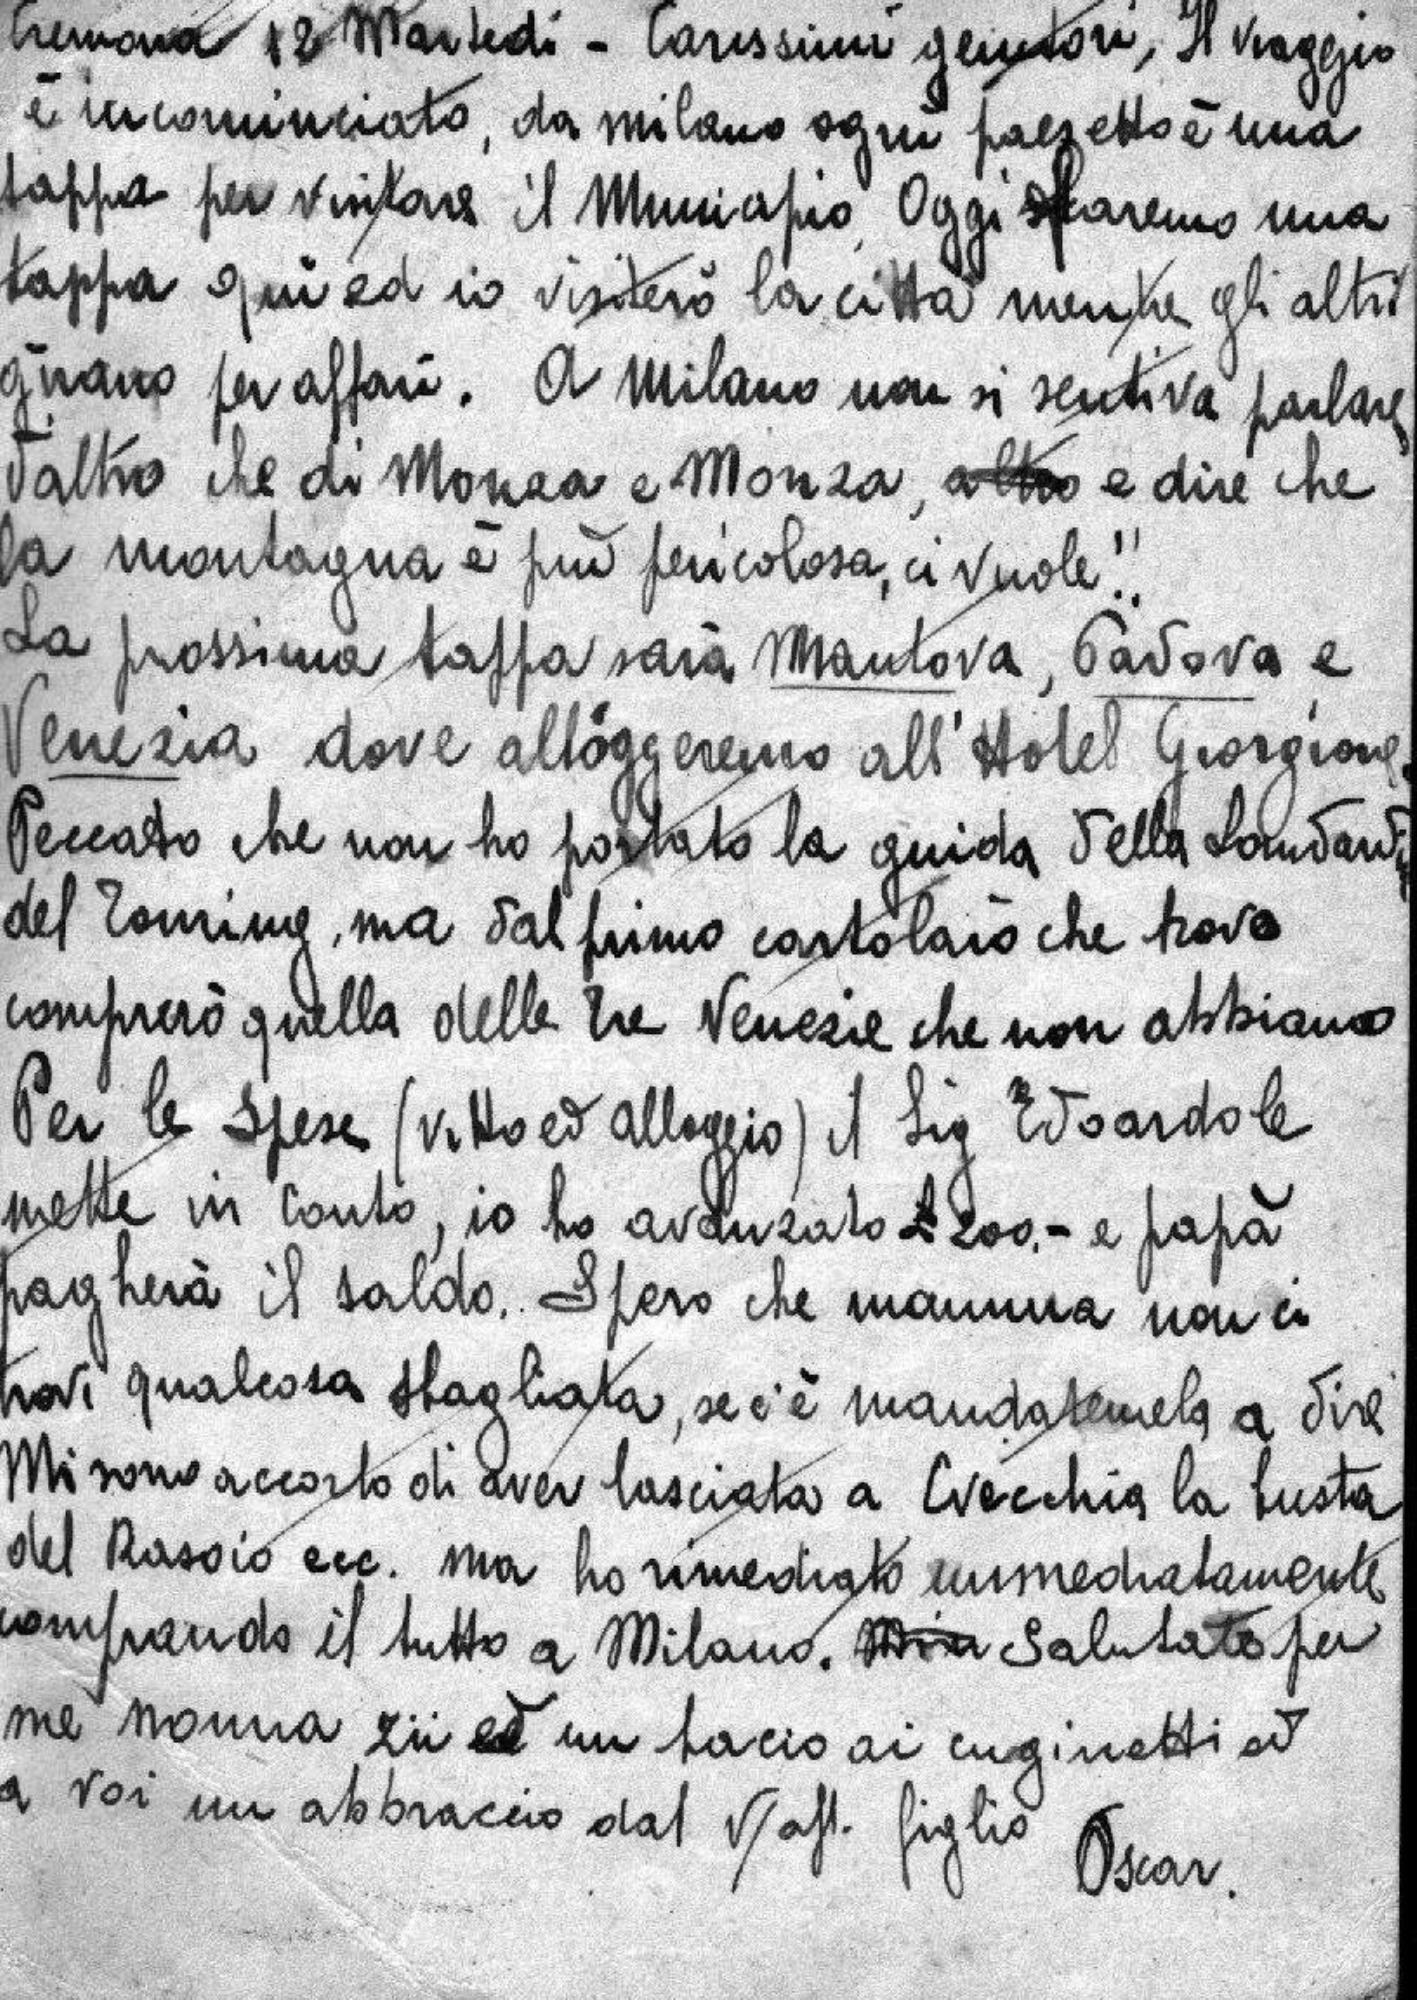 Cremona 12 Martedi - Carissimi genitori, Il viaggio
è incominciato, da milano ogni paesetto è una
tappa per visitare il Municipio, Oggi faremo una
tappa qui ed io visiterò la città mentre gli altri
girano per affari. A Milano non si sentiva parlare
d'altro che di Monza e Monza, altro e dire che
la montagna è più pericolosa, ci vuole!!
La prossima tappa sarà Mantova, Padova e
Venezia dove alloggeremo all'Hotel Giorgione.
Peccato che non ho portato la guida della
del Touring, ma dal primo cartolaio che trovo
comprerò quella delle Tre Venezie che non abbiamo
Per le Spese (vitto ed alloggio) il Sig Edoardo le
mette in conto, io ho avanzato £200.- e papà
pagherà il saldo. Spero che mamma non ci
trovi qualcosa sbagliata, se c'è mandatemela a dire
Mi sono accorto di aver lasciata a Cvecchia la busta
del Rasoio ecc. ma ho rimediato immediatamente
comprando il tutto a Milano. Salutate per
me nonna zii ed un bacio ai cuginetti ed
a voi un abbraccio dal V/aff. figlio
Oscar.